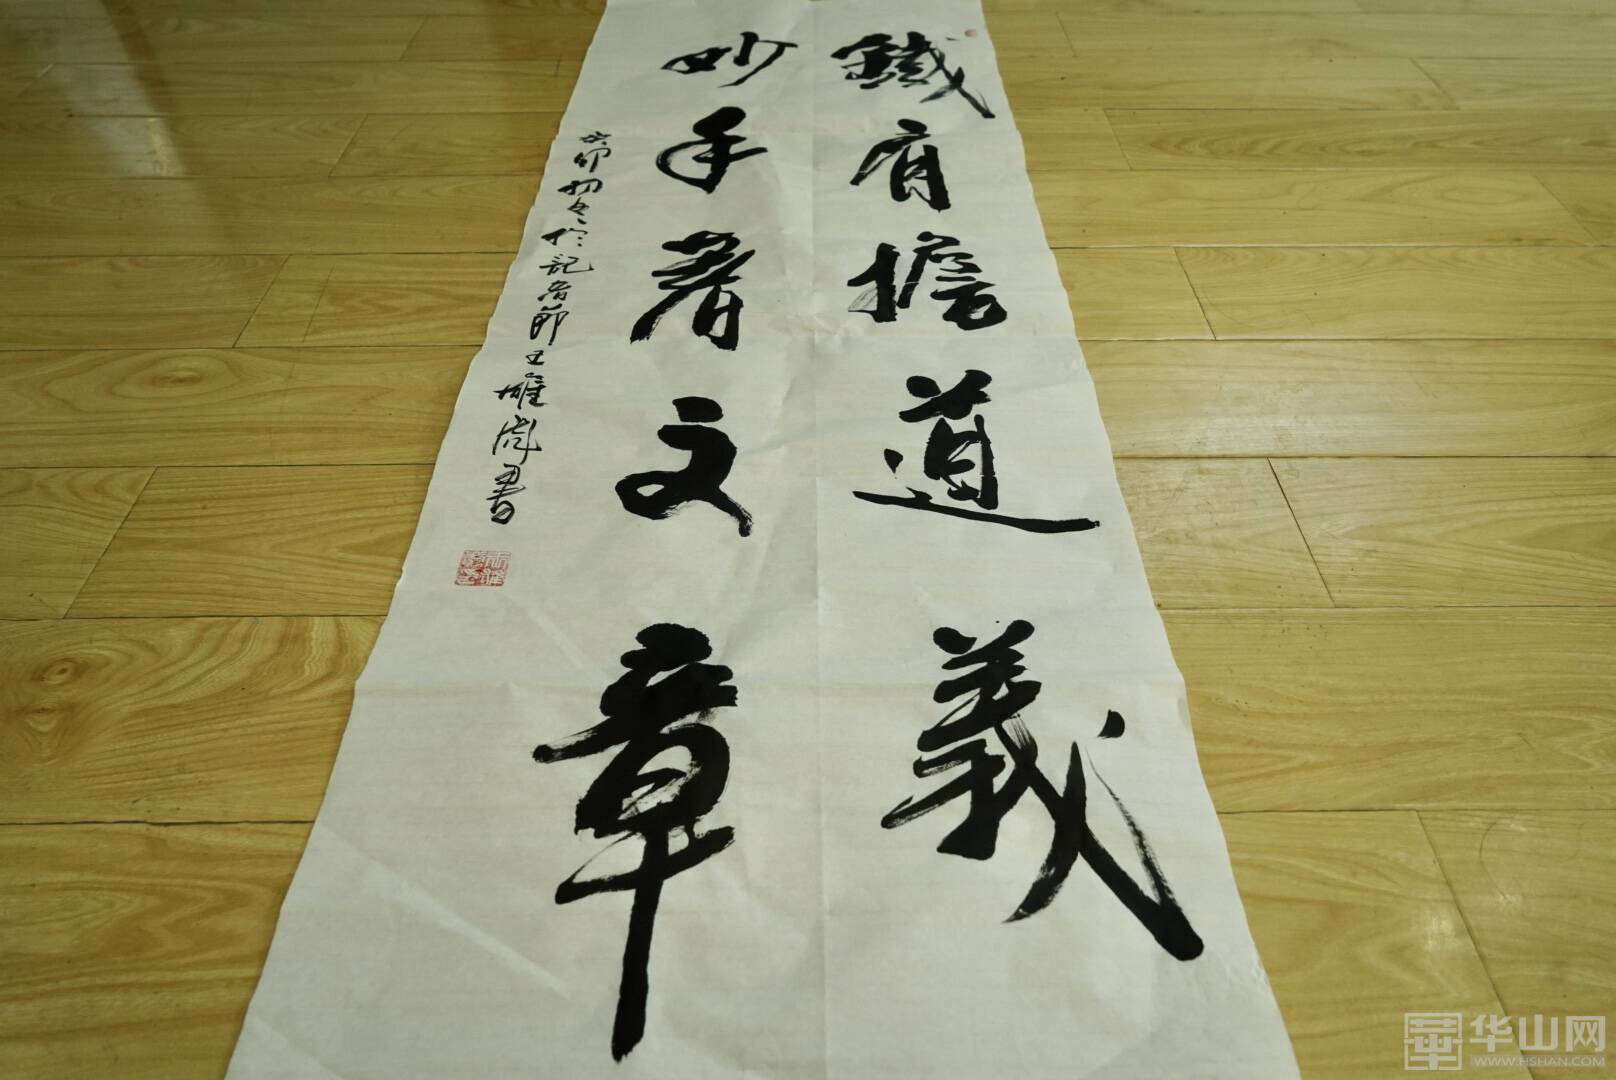 鐵肩擔道義
妙手著文章
癸卯初冬於記者節王雄彪書
華山网
WWW.HSHAN.COM